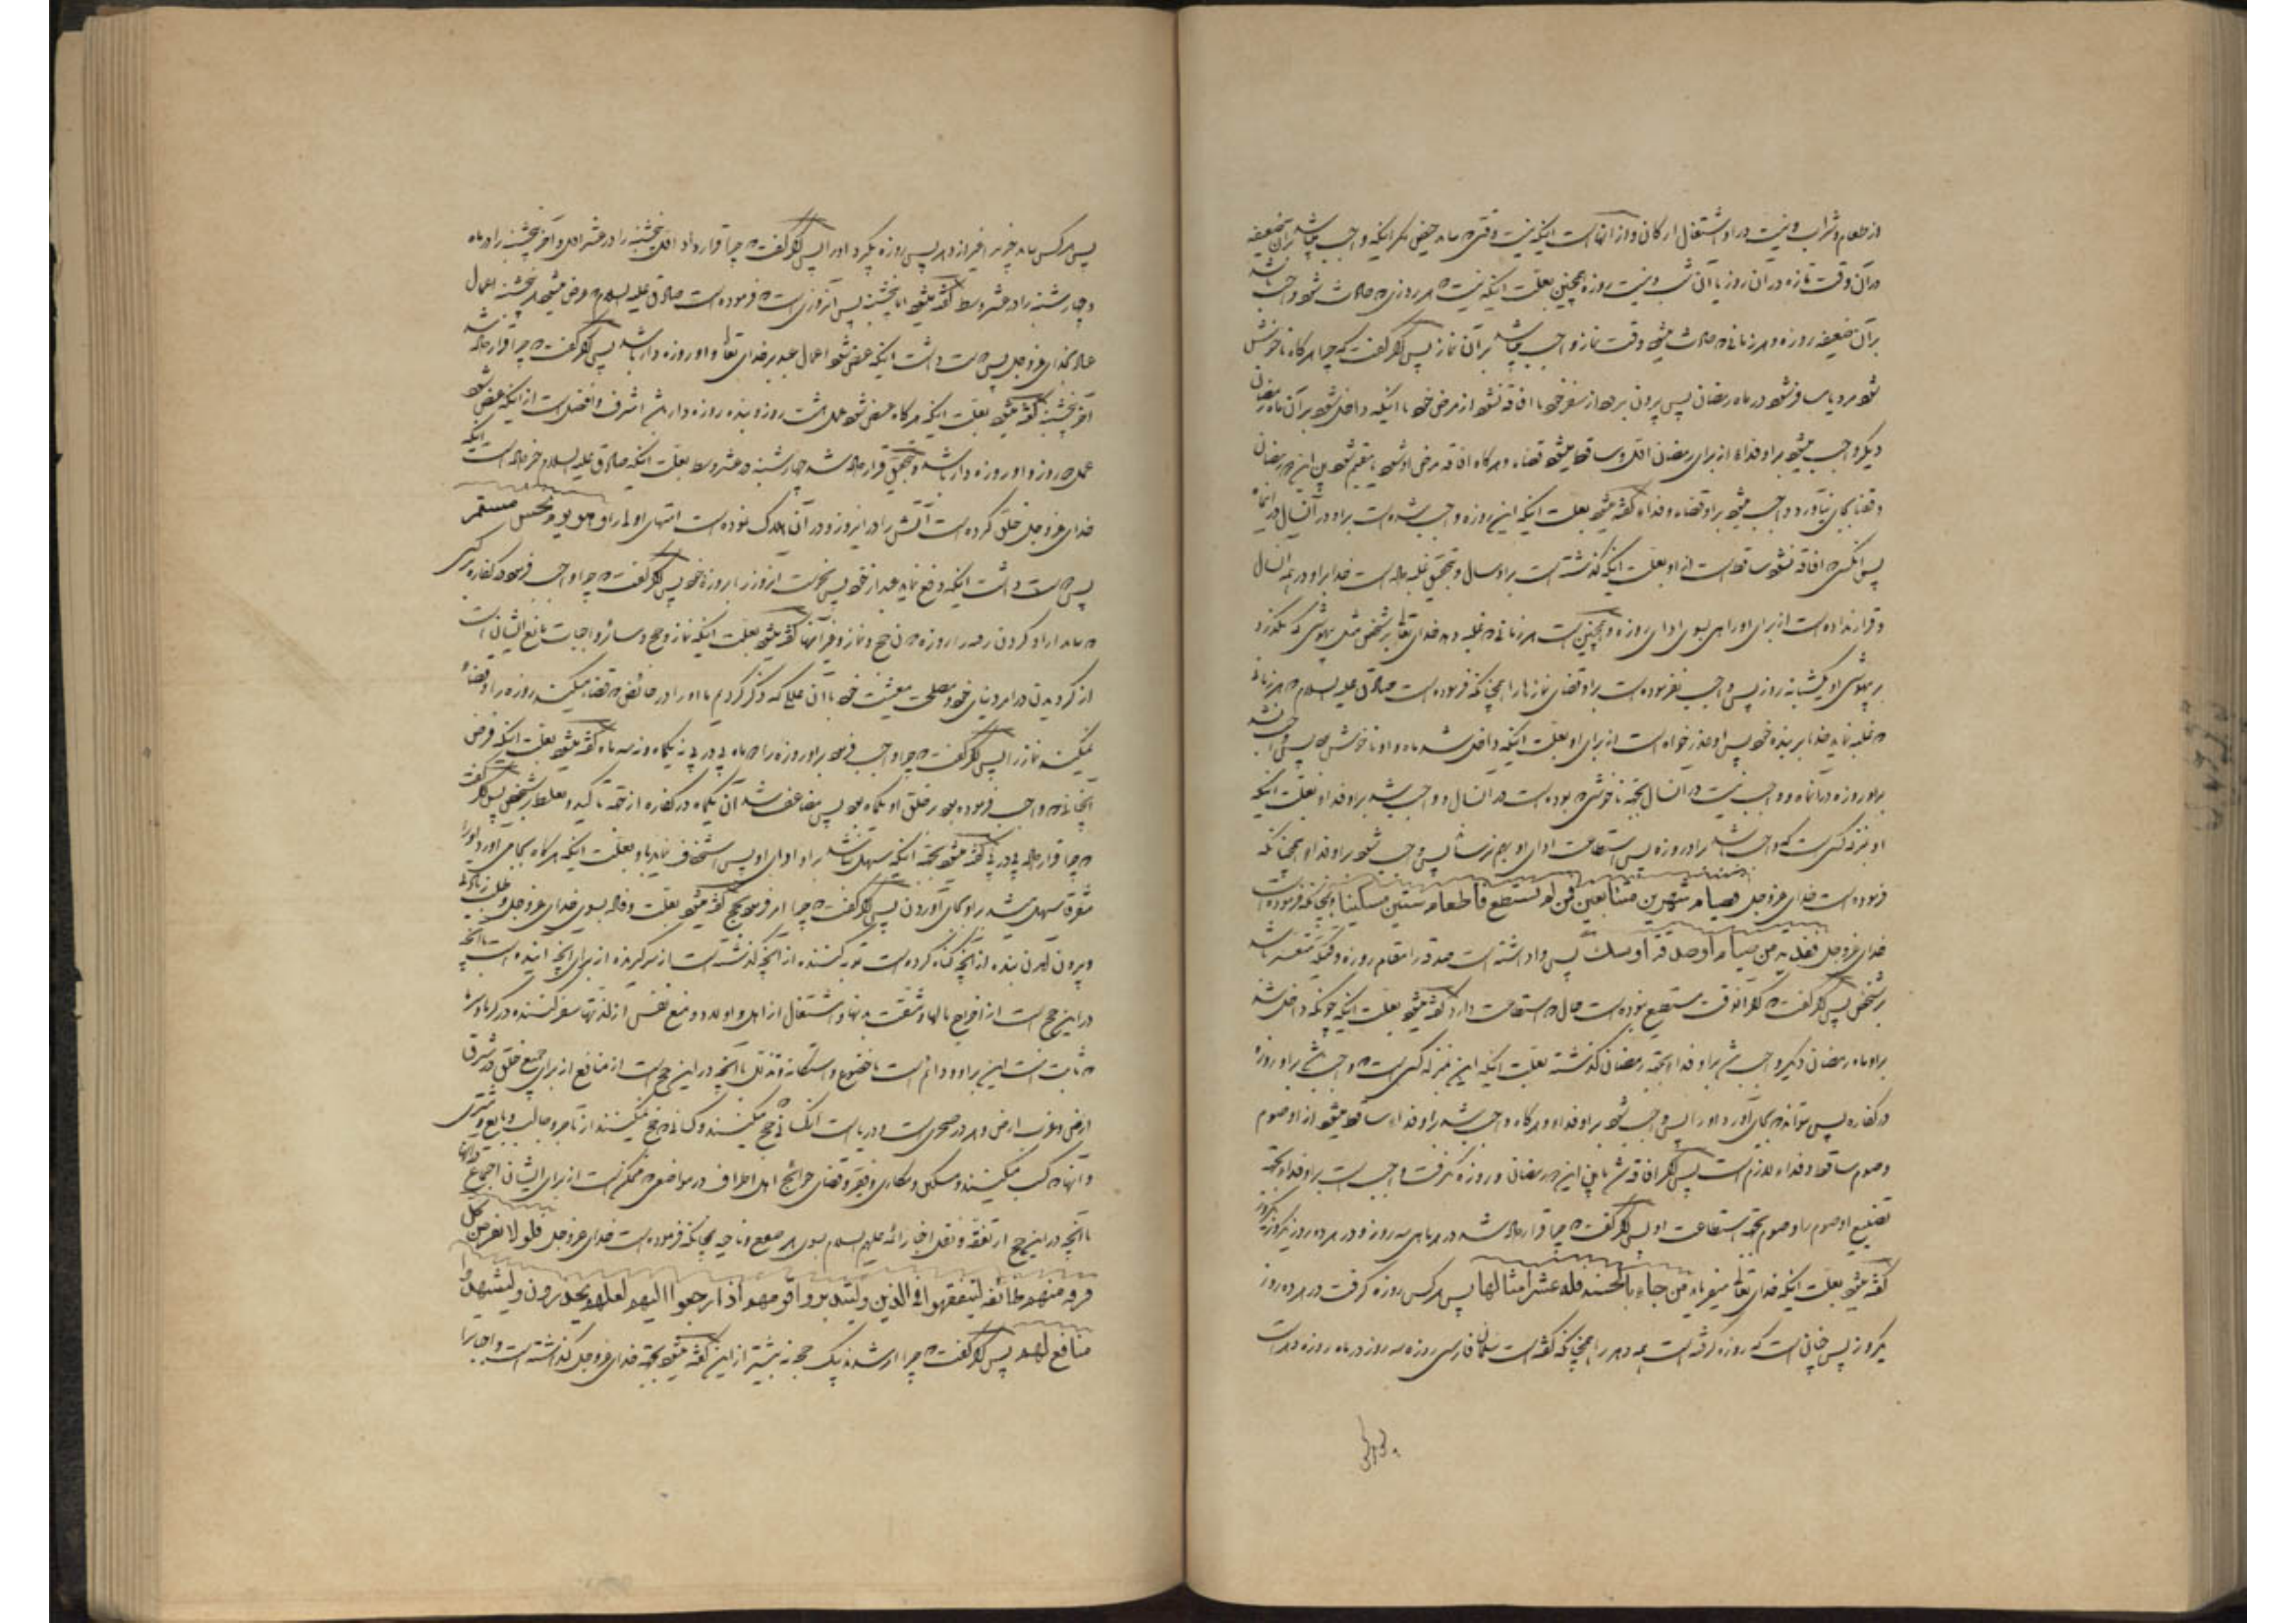 از طعام و شراب و نیست در او اشتغال ارکان و از آنهاست اینکه نیست وقتی که بیاید حیض مگر اینکه واجب باشد بر آن ضعیفه
در آن وقت تازه در آن روز یا آن شب و نیست روزه همچنین بعلت اینکه نیست هر روزی که حادث شود واجب باشد
بر آن ضعیفه روزه و هر زمانی که حادث میشود وقت نماز واجب میباشد بر آن نماز پس اگر گفت که چرا هرگاه ناخوش
شود مرد یا مسافر شود در ماه رمضان پس بیرون نرود از سفر خود یا افاقه نشود از مرض خود تا اینکه داخل شود بر آن ماه رمضان
دیگر واجب میشود بر او فداء از برای رمضان اول و ساقط میشود قضاء و هرگاه افاقه مرض او شود یا مقیم شود بین این دو رمضان
و قضا بجای نیاورد واجب میشود بر او قضاء و فداء گفته میشود بعلت اینکه این روزه واجب شده است بر او در آنسال در آنماه
پس آنکس که افاقه نشود ساقط است از او بعلت اینکه گذشته است بر او سال و بتحقیق غلبه داده است خدا بر او در همه آنسال
و قرار نداده است از برای او راهی بسوی ادای روزه و همچنین است هر زمانی که غلبه دهد خدای تعالی بر شخص مثل بیهوشی که بگذرد
بر بیهوشی او یکشبانه روز پس واجب نفرموده است بر او قضای نمازها را همچنانکه فرموده است صادق علیه السلام که هر زمانی
که غلبه نماید خدا بر بنده خود پس او عذر خواه است از برای او بعلت اینکه داخل شد ماه و او ناخوش بود پس واجب نشد
بر او روزه در آنماه و واجب نیست در آنسال بجهة ناخوشی که بوده است در آنسال و واجب شد بر او فداء بعلت اینکه
او بمنزله کسی است که واجب باشد بر او روزه پس استطاعت ادای او بهم نرساند پس واجب شود بر او فداء همچنانکه
فرموده است خدای عزوجل فصیام شهرین متتابعین فمن لم یستطع فاطعام ستین مسکینا و همچنانکه فرموده است
خدای عزوجل ففدیه من صیام او صدقة او نسك پس واداشته است صدقه را مقام روزه وقتیکه متعسر باشد
بر شخص پس اگر گفت که اگر آنوقت مستطیع نبوده است حال که استطاعت دارد گفته میشود بعلت اینکه چونکه داخل شد
بر او ماه رمضان دیگر واجب شد بر او فداء بجهة رمضان گذشته بعلت اینکه این بمنزله کسی است که واجب باشد بر او روزه
در کفاره پس نتواند که بجای آورد او را پس واجب شود بر او فداء و هرگاه واجب شد بر او فداء ساقط میشود از او صوم
و صوم ساقط و فداء لازم است پس اگر افاقه شد مابین این دو رمضان و روزه نگرفت واجب است بر او فداء بجهة
تضییع او صوم را و صوم بجهة استطاعت او پس اگر گفت که چرا قرار داده شد در هر ماهی سه روز و در هر ده روز یکروز
گفته میشود بعلت اینکه خدای تعالی میفرماید من جاء بالحسنه فله عشر امثالها پس هر کس روزه گرفت در هر ده روز
یکروز پس چنانست که روزه گرفته است همه دهر را همچنانکه گفته است سلمان فارسی روزه سه روز در ماه روزه دهر است
پس هر کس بیابد چیزی غیر از دهر پس روزه بگیرد او را پس اگر گفت که چرا قرار داد اول پنجشنبه را در عشر اول و آخر پنجشنبه را در ماه
و چهارشنبه را در عشر وسط گفته میشود اما پنجشنبه پس آنروزی است که فرموده است صادق علیه السلام که عرض میشود هر پنجشنبه اعمال
عباد بخدای عزوجل پس دوست داشت اینکه عرض شود اعمال عبد بر خدای تعالی و او روزه دار باشد پس اگر گفت که چرا قرار داده شد
آخر پنجشنبه گفته میشود بعلت اینکه هرگاه عرض شود عمل هشت روز و بنده روزه دار باشد اشرف و افضل است از اینکه عرض شود
عمل دو روز و او روزه دار باشد و بتحقیق قرار داده شد چهارشنبه در عشر وسط بعلت اینکه صادق علیه السلام خبر داده است اینکه
خدای عزوجل خلق کرده است آتش را در اینروز و در آن هلاک نموده است امتهای اول را و هو یوم نحس مستمر
پس دوست داشت اینکه دفع نماید عبد از خود پس نحوست آنروز را بروزه خود پس اگر گفت که چرا واجب فرمود در کفاره بر کسی
که نیابد آزاد کردن رقبه را روزه نه حج و نماز و غیر آنها گفته میشود بعلت اینکه نماز و حج و سایر واجبات مانع انسان است
از گردیدن در امر دنیای خود و مصلحت معیشت خود با آن عللی که ذکر کردیم ما او را در حائض که قضاء میکند روزه را و قضاء
نمیکند نماز را پس اگر گفت که چرا واجب فرمود بر او روزه را دو ماه پی در پی نه یکماه و نه سه ماه گفته میشود بعلت اینکه فرض
آنچنانی که واجب فرموده بود بر خلق او یکماه بود پس مضاعف شد آن یکماه در کفاره از جهة تاکید و تغلیظ بر شخص پس اگر گفت
که چرا قرار داده پی در پی گفته میشود بجهة اینکه سهل نباشد بر او ادای او پس استخفاف نماید باو بعلت اینکه هرگاه بجا می آورد او را
متفرقا سهل میشد بر او بجای آوردن پس اگر گفت که چرا امر فرمود بحج گفته میشود بعلت وفاده بسوی خدای عزوجل و طلب زیادتی
و بیرون آمدن بنده از آنچه گناه کرده است توبه کننده از آنچه گذشته است از سر گیرنده از برای آنچه آینده است با آنچه
در این حج است از اخراج مالها و مشقت بدنها و اشتغال از اهل و اولاد و منع نفس از لذتها سفر کننده در گرما و سرما
که ثابت است این بر او و دائم است با خضوع و استکانه و تذلل با آنچه در این حج است از منافع از برای جمیع خلق در شرق
ارض و غرب ارض و هر که در صحری است و دریاست آنکسانی که حج میکنند و کسانی که حج نمیکنند از تاجر و جالب و بایع و مشتری
و آنهائی که کسب میکنند و مسکین و مکاری و فقیر و قضای حوائج اهل اطراف در مواضعی که ممکن است از برای ایشان اجتماع در آنها
با آنچه در این حج از تفقه و نقل اخبار ائمه علیهم السلام بسوی هر صقع و ناحیه همچنانکه فرموده است خدای عزوجل فلولا نفر من کل
فرقه منهم طائفه لیتفقهوا فی الدین و لینذروا قومهم اذا رجعوا الیهم لعلهم یحذرون و لیشهدوا
منافع لهم پس اگر گفت که چرا امر شدند بیک حجه نه بیشتر از این گفته میشود بجهة خدای عزوجل گذاشته است واجبات را